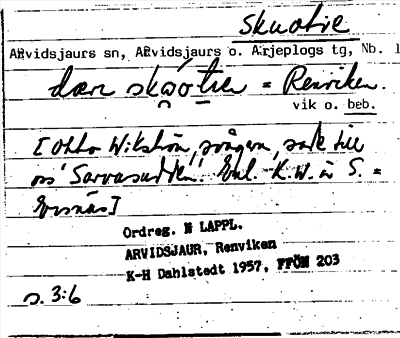 skuotie
Arvidsjaurs sn, Arvidsjaurs o. Arjeplogs tg, Nb. l
dæn skϙótie = Renviken.
vik o. beb.
[Otto Wikström, svågern, sade till
oss 'Sarvasudden'. Enl. K.W. är S. =
Ersnäs]
Ordreg. N LAPPL.
ARVIDSJAUR, Renviken
K-H Dahlstedt 1957, FFÖN 203
s. 3:6